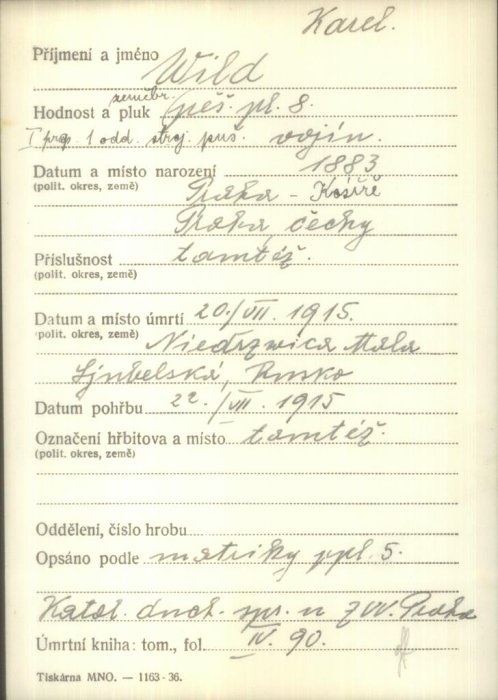 Karel.
Příjmení a jméno Wild
zeměbr.
Hodnost a pluk pěš. pl. 8.
I prap 1 odd. stroj. puš. vojín.
Datum a místo narození 1883
(polit. okres, země) Praha - Košíře
Praha, čechy
Příslušnost tamtéž.
(polit. okres, země)
Datum a místo úmrtí 20./VII. 1915.
(polit. okres, země) Niedrzwica Mala
Ljubelská, Rusko
Datum pohřbu 22./VII. 1915
Označení hřbitova a místo tamtéž.
(polit. okres, země)
Oddělení, číslo hrobu
Opsáno podle matriky ppl. 5.
Katol. duch. spr. u ZVV. Praha
Úmrtní kniha: tom., fol. IV. 90.
Tiskárna MNO. — 1163-36.